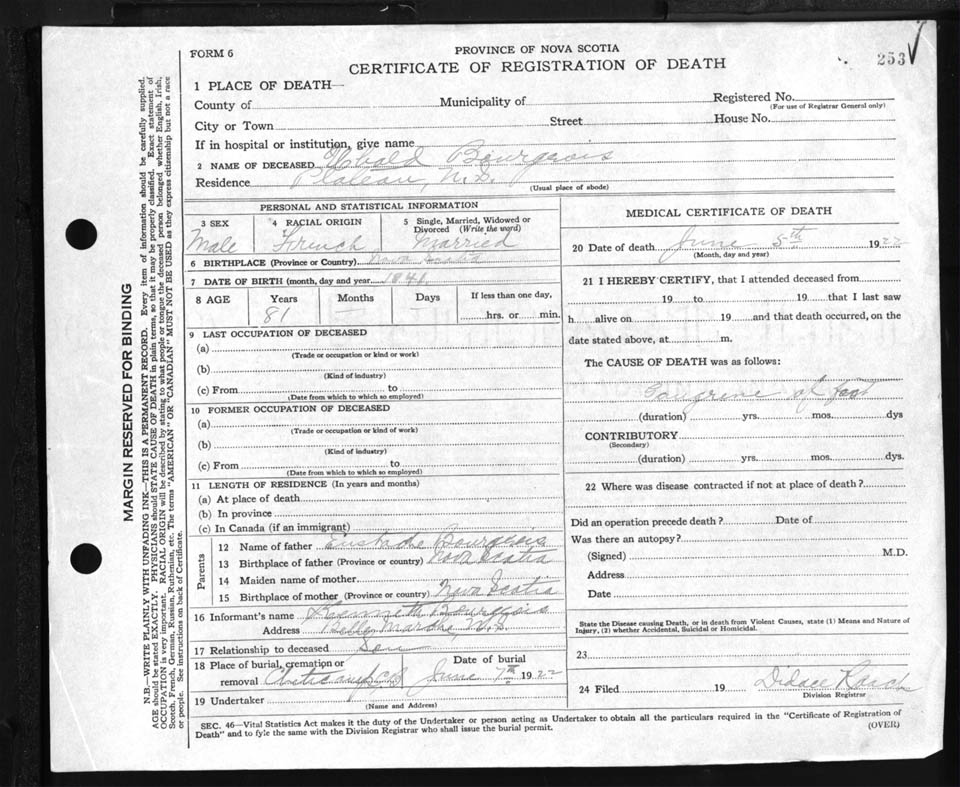 FORM 6
PROVINCE OF NOVA SCOTIA
CERTIFICATE OF REGISTRATION OF DEATH
253
1 PLACE OF DEATH—
County of
Municipality of
Registered No.
(For use of Registrar General only)
City or Town
Street
House No.
If in hospital or institution, give name
2 NAME OF DECEASED Ubald Bourgeois
Residence Plateau, N.S.
(Usual place of abode)
PERSONAL AND STATISTICAL INFORMATION
3 SEX
Male
4 RACIAL ORIGIN
French
5 Single, Married, Widowed or
Divorced (Write the word)
Married
6 BIRTHPLACE (Province or Country) Nova Scotia
7 DATE OF BIRTH (month, day and year) 1841
8 AGE
Years
81
Months
Days
If less than one day,
hrs. or min.
9 LAST OCCUPATION OF DECEASED
(a)
(Trade or occupation or kind or work)
(b)
(Kind of industry)
(c) From to
(Date from which to which so employed)
10 FORMER OCCUPATION OF DECEASED
(a)
(Trade or occupation or kind of work)
(b)
(Kind of industry)
(c) From to
(Date from which to which so employed)
11 LENGTH OF RESIDENCE (In years and months)
(a) At place of death
(b) In province
(c) In Canada (if an immigrant)
Parents
12 Name of father Eustache Bourgeois
13 Birthplace of father (Province or country) Nova Scotia
14 Maiden name of mother
15 Birthplace of mother (Province or country) Nova Scotia
16 Informant's name Kenneth Bourgeois
Address Belle Marche, N.S.
17 Relationship to deceased Son
18 Place of burial, cremation or
removal
Date of burial
June 7th 1922
19 Undertaker
(Name and Address)
MEDICAL CERTIFICATE OF DEATH
20 Date of death June 5th 1922
(Month, day and year)
21 I HEREBY CERTIFY, that I attended deceased from
19 to 19 that I last saw
h alive on 19 and that death occurred, on the
date stated above, at m.
The CAUSE OF DEATH was as follows:
Gangrene of foot
(duration) yrs. mos. dys
CONTRIBUTORY
(Secondary)
(duration) yrs. mos. dys.
22 Where was disease contracted if not at place of death?
Did an operation precede death? Date of
Was there an autopsy?
(Signed) M.D.
Address
Date
State the Disease causing Death, or in death from Violent Causes, state (1) Means and Nature of
Injury, (2) whether Accidental, Suicidal or Homicidal.
23
24 Filed 19
Didace
Division Registrar
SEC. 46—Vital Statistics Act makes it the duty of the Undertaker or person acting as Undertaker to obtain all the particulars required in the "Certificate of Registration of
Death" and to fyle the same with the Division Registrar who shall issue the burial permit.
(OVER)
MARGIN RESERVED FOR BINDING
N.B.—WRITE PLAINLY WITH UNFADING INK—THIS IS A PERMANENT RECORD. Every item of information should be carefully supplied.
AGE should be stated EXACTLY. PHYSICIANS should STATE CAUSE OF DEATH in plain terms, so that it may be properly classified. Exact statement of
OCCUPATION is very important. RACIAL ORIGIN will be described by stating to what people or tongue the deceased person belonged whether English, Irish,
Scotch, French, German, Russian, Ruthenian, etc. The terms "AMERICAN" OR "CANADIAN" MUST NOT BE USED as they express citizenship but not a race
or people. See instructions on back of Certificate.